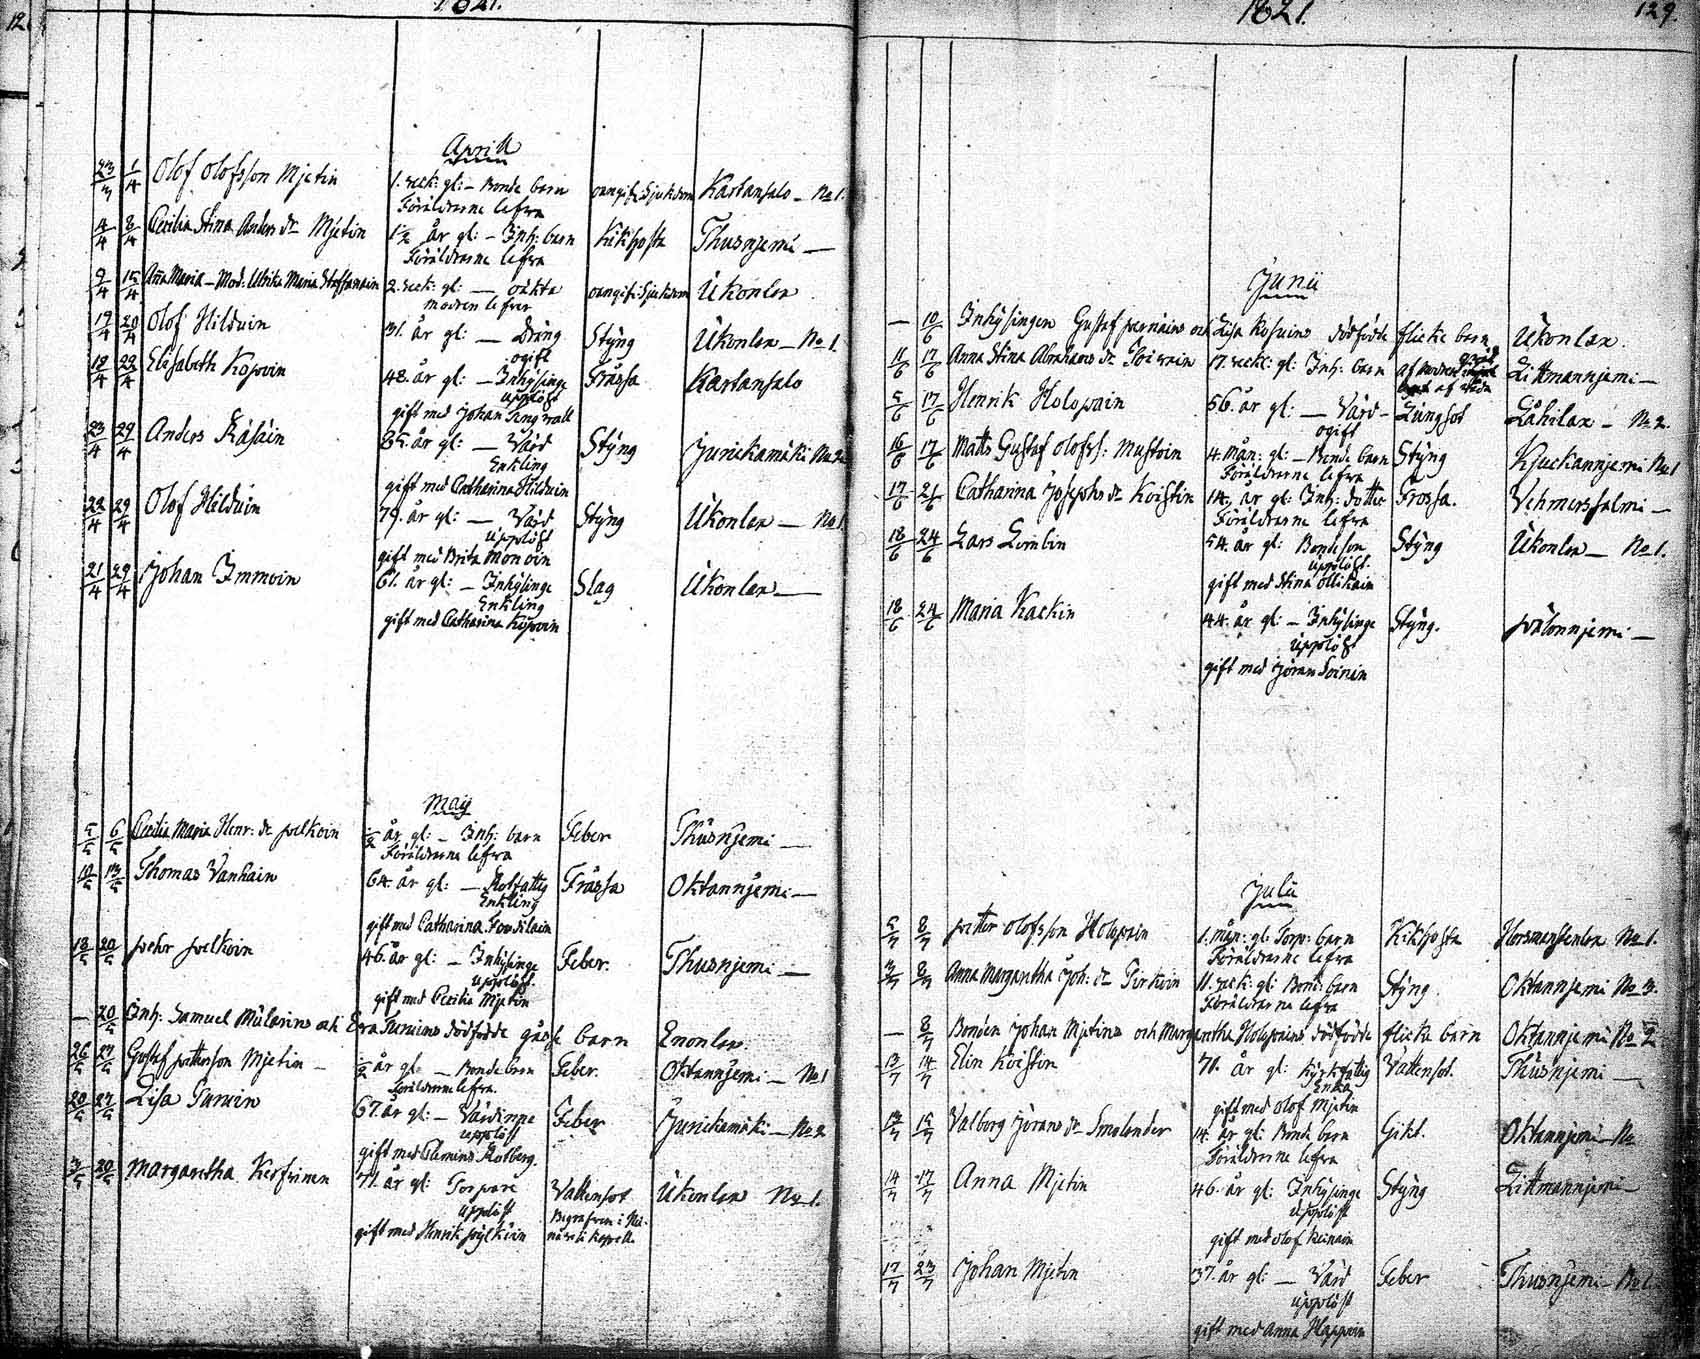 1821.
Aprill
23/3 1/4 Olof Olofsson Mjetin 1. veck: gl: - Bonde barn oangifv: Sjukdom Kartansalo - No 1.
Föräldrarne lefva
4/4 8/4 Cecilia Stina Anders dr Mjetin 1½ år gl: - Inh: barn Kikhosta Thusnjemi -
Föräldrarne lefva
9/4 15/4 Anna Maria - Mod: Ulrika Maria 2. veck: gl: - oäkta oangifv: Sjukdom Ukonlax
modren lefver
19/4 20/4 Olof Hilduin 31. år gl: - Dräng Styng Ukonlax - No 1.
ogift
18/4 22/4 Elisabeth Kosoin 48. år gl: - Inhysinge Frässa Kartansalo
upplöst
gift med Johan Tengvall
23/4 29/4 Anders Räsäin 85. år gl: - Värd Styng Jurickamäki No 2.
Enkling
gift med Catharina Hilduin
22/4 29/4 Olof Hilduin 79. år gl: - Värd Styng Ukonlax - No 1.
upplöst
gift med Brita Monoin
21/4 29/4 Johan Immoin 61. år gl: - Inhysinge Slag Ukonlax -
Enkling
gift med Catharina Kosoin
May
5/5 6/5 Cecilia Maria Henr: dr Pelkoin ½ år gl: - Inh: barn Feber Thusnjemi -
Föräldrarne lefva
10/5 13/5 Thomas Vanhain 64. år gl: - Rotfattig Frässa Oktannjemi -
Enkling
gift med Catharina
18/5 20/5 Pehr Pelkoin 46. år gl: - Inhysinge Feber. Thusnjemi -
upplöst.
gift med Cecilia Mjetin
- 20/5 Inh: Samuel och Eva dödfödde gåsse barn Enonlax.
26/5 27/5 Gustaf Pettersson Mjetin - ½ år gl: - Bonde barn Feber. Oktannjemi - No 1
Föräldrarne lefva.
20/5 27/5 Lisa 67. år gl: - Värdinne Feber Jurickamäki - No 2
upplöst
gift med Clemens Rotberg.
3/5 20/5 Margaretha 71. år gl: Torpare Vattensot Ukonlax No 1.
upplöst Begrafven i
gift med Henrik kapell
1821. 129.
Junii
- 10/6 Inhysingen Gustaf och Lisa Kosoins dödfödde flicke barn Ukonlax.
11/6 17/6 Anna Stina Abrahams dr Toivain 17. veck: gl: Inh: barn af Littmannjemi -
5/6 17/6 Henrik Holopain 56. år gl: - Värd - Lungsot - No 2.
ogift
16/6 17/6 Matts Gustaf Olofss: Mustoin 4. mån: gl: - Bonde barn Styng No 1
Föräldrarne lefva
17/6 21/6 Catharina Josephs dr Koistin 14. år gl: Inh: dotter Frossa. Vehmersalmi -
Föräldrarne lefva
18/6 24/6 Lars 54. år gl: Bondeson Styng Ukonlax - No 1.
upplöst
gift med Stina Ollikain
18/6 24/6 Maria Kackin 44. år gl: - Inhysinge Styng.
upplöst
gift med Jöran Toivain
Julii
5/7 8/7 Petter Olofsson Holopain 1. mån: gl: Torp: barn Kikhosta Horsmansenlax No 1.
Föräldrarne lefva
3/7 8/7 Anna Margaretha Joh: dr 11. veck: gl: Bond: barn Styng Oktannjemi No 3.
Föräldrarne lefva
- 8/7 Bonden Johan Mjetins och Margaretha Holopains dödfödde flicke barn Oktannjemi No 2
13/7 14/7 Elin Koistin 70. år gl: Kyrkfattig Vattensot. Thusnjemi -
Enka
gift med Olof Mjetin
13/7 15/7 Valborg Jörans dr Smolender 14. år gl: Bonde barn Gikt. Oktannjemi No
Föräldrarne lefva
14/7 17/7 Anna Mjetin 46. år gl: Inhysinge Styng Littmannjemi -
upplöst
gift med Olof
17/7 23/7 Johan Mjetin 37. år gl: - Värd Feber Thusnjemi - No 1.
upplöst
gift med Anna Happoin